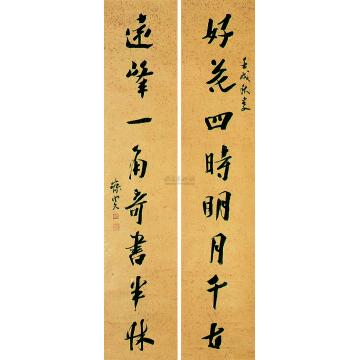 好花四時明月千古
壬戌秋
遠峯一角奇書半牀